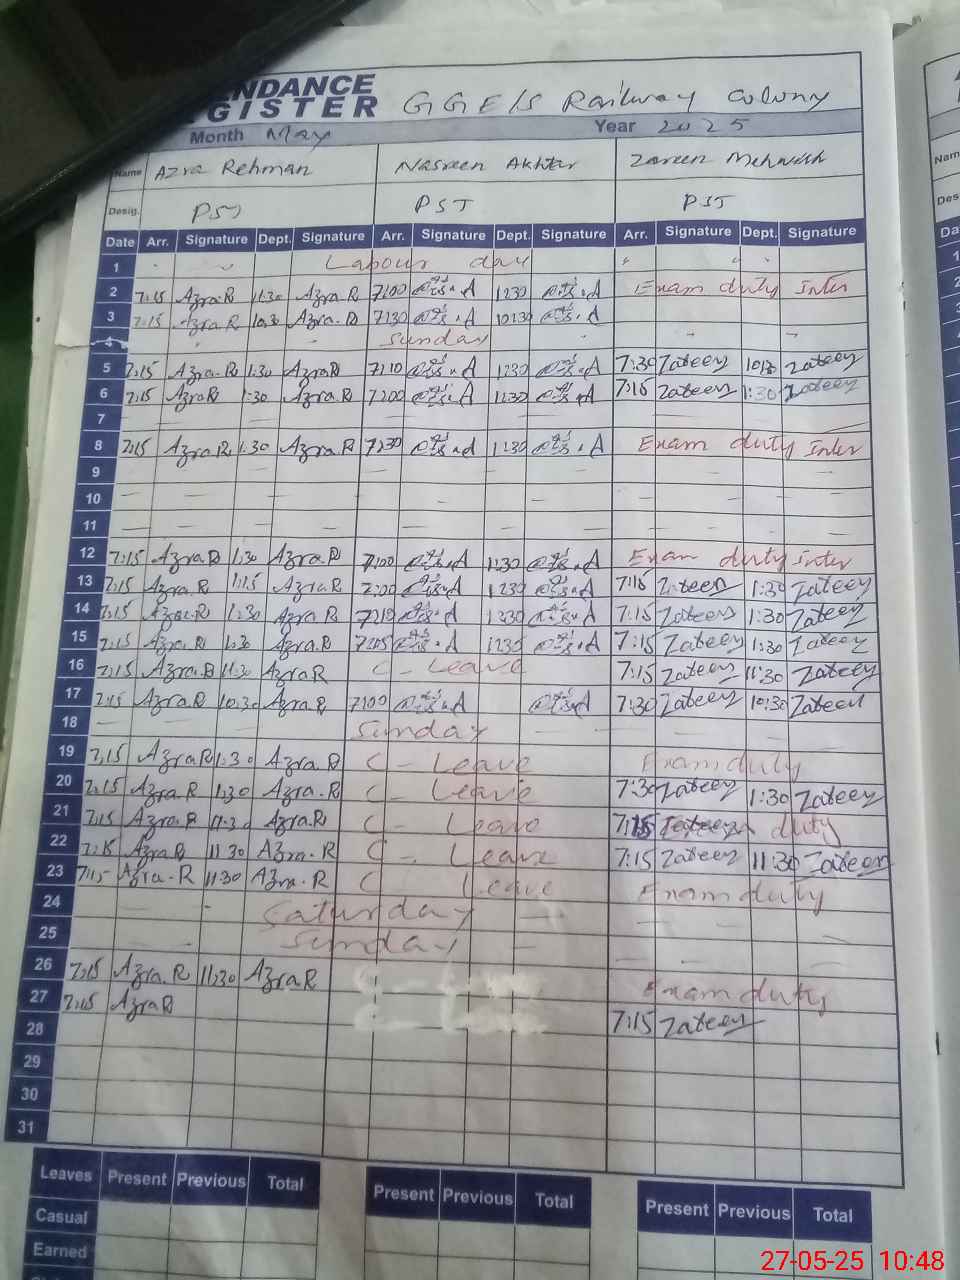 NDANCE
GISTER GGE/S Railway Colony
Month May Year 2025
Name Azra Rehman Nasreen Akhtar Zareen Mehwish
Desig. PST PST
Date Arr. Signature Dept. Signature Arr. Signature Dept. Signature Arr. Signature Dept. Signature
1 Labour day
2 7:15 Azra.R 11:30 Azra.R 7:00 1230 Exam duty Inter
3 7:15 Azra R 10:30 Azra. R 7:30 10:30
4 Sunday
5 7:15 Azra.R 1:30 AzraR 7:10 1230 7:30 Zateey Zateey
6 7:15 AzraR 1:30 Azra.R 7:00 7:15 Zateey 1:30 Zateey
7
8 7:15 Azra R 1:30 Azra.R 7:30 1230 Exam duty Inter
9
10
11
12 7:15 Azra.R 1:30 Azra.R 7:00 Exam duty Inter
13 7:15 Azra.R 1:15 Azra.R 7:00 1230 7:15 Zateen 1:30 Zateey
14 7:15 Azra.R 1:30 Azra.R 7:15 Zateey 1:30 Zateey
15 7:15 Azra.R 1:30 Azra.R 7:15 Zateey 1:30 Zateey
16 7:15 Azra.R 11:30 Azra R C - Leave 7:15 Zateey 11:30 Zateey
17 7:15 Azra.R 10:30 Azra.R 7:00 7:30 Zateey 10:30 Zateen
18 Sunday
19 7:15 Azra R 1:30 Azra.R C - Leave Exam duty
20 7:15 Azra.R 1:30 Azra.R C - Leave 7:30 Zateey 1:30 Zateey
21 7:15 Azra.R 11:30 Azra.R C - Leave 7:15 duty
22 7:15 Azra R 11:30 Azra.R C - Leave 7:15 Zateey 11:30 Zateen
23 7:15 Azra.R 11:30 Azra.R C Leave Exam duty
24 Saturday
25 Sunday
26 7:15 Azra.R 11:30 Azra R Exam duty
27 7:15 Azra R 7:15 Zateey
28
29
30
31
Leaves Present Previous Total Present Previous Total Present Previous Total
Casual
Earned
27-05-25 10:48